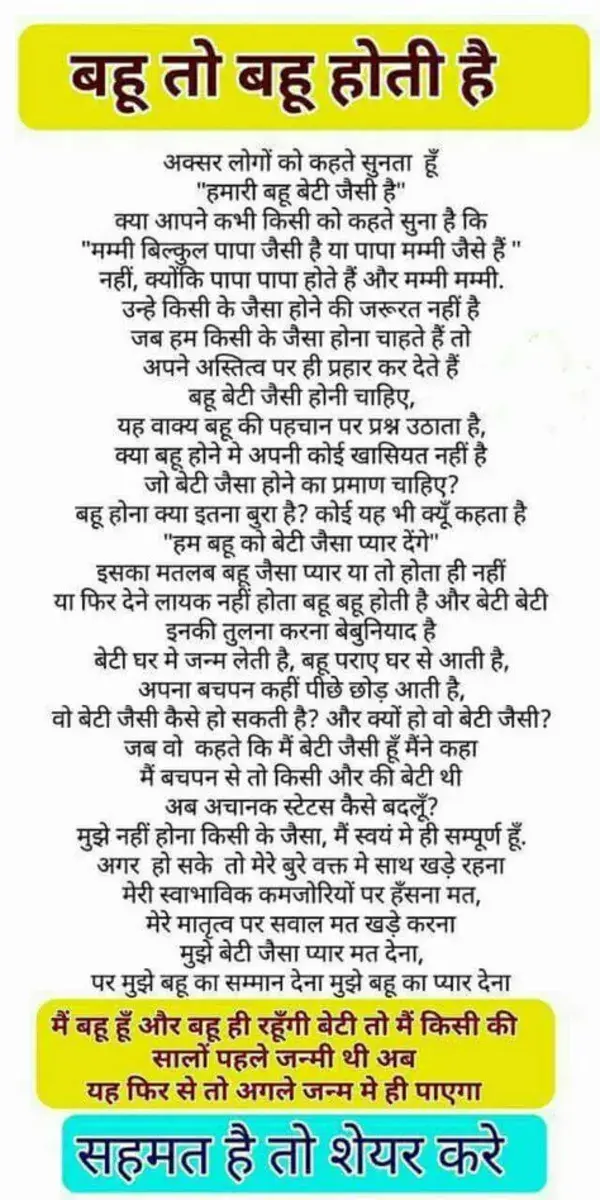 बहू तो बहू होती है
अक्सर लोगों को कहते सुनता हूँ
"हमारी बहू बेटी जैसी है"
क्या आपने कभी किसी को कहते सुना है कि
"मम्मी बिल्कुल पापा जैसी है या पापा मम्मी जैसे हैं "
नहीं, क्योंकि पापा पापा होते हैं और मम्मी मम्मी.
उन्हे किसी के जैसा होने की जरूरत नहीं है
जब हम किसी के जैसा होना चाहते हैं तो
अपने अस्तित्व पर ही प्रहार कर देते हैं
बहू बेटी जैसी होनी चाहिए,
यह वाक्य बहू की पहचान पर प्रश्न उठाता है,
क्या बहू होने मे अपनी कोई खासियत नहीं है
जो बेटी जैसा होने का प्रमाण चाहिए?
बहू होना क्या इतना बुरा है? कोई यह भी क्यूँ कहता है
"हम बहू को बेटी जैसा प्यार देंगे"
इसका मतलब बहू जैसा प्यार या तो होता ही नहीं
या फिर देने लायक नहीं होता बहू बहू होती है और बेटी बेटी
इनकी तुलना करना बेबुनियाद है
बेटी घर मे जन्म लेती है, बहू पराए घर से आती है,
अपना बचपन कहीं पीछे छोड़ आती है,
वो बेटी जैसी कैसे हो सकती है? और क्यों हो वो बेटी जैसी?
जब वो कहते कि मैं बेटी जैसी हूँ मैंने कहा
मैं बचपन से तो किसी और की बेटी थी
अब अचानक स्टेटस कैसे बदलूँ?
मुझे नहीं होना किसी के जैसा, मैं स्वयं मे ही सम्पूर्ण हूँ.
अगर हो सके तो मेरे बुरे वक्त मे साथ खड़े रहना
मेरी स्वाभाविक कमजोरियों पर हँसना मत,
मेरे मातृत्व पर सवाल मत खड़े करना
मुझे बेटी जैसा प्यार मत देना,
पर मुझे बहू का सम्मान देना मुझे बहू का प्यार देना
मैं बहू हूँ और बहू ही रहूँगी बेटी तो मैं किसी की
सालों पहले जन्मी थी अब
यह फिर से तो अगले जन्म मे ही पाएगा
सहमत है तो शेयर करे